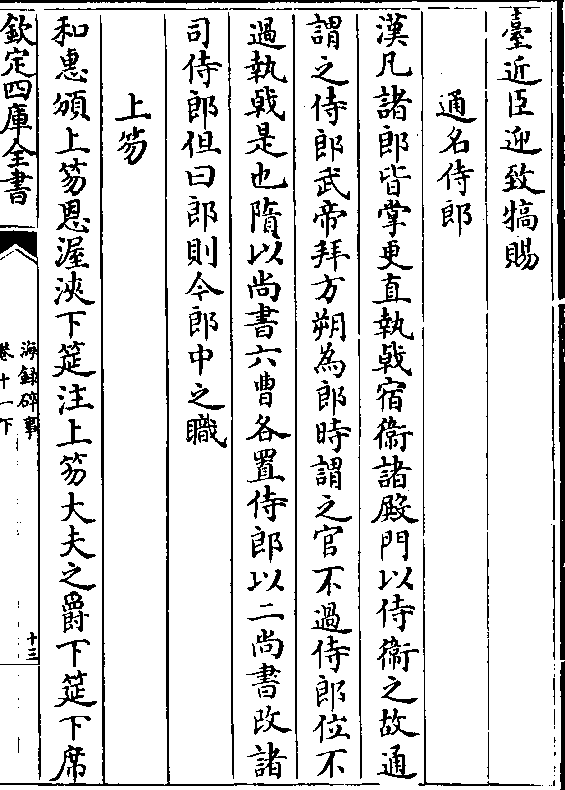 臺近臣迎致犒賜
通名侍郎
漢凡諸郎皆掌更直執㦸宿衞諸殿門以侍衞之故通
謂之侍郎武帝拜方朔為郎時謂之官不過侍郎位不
過執㦸是也隋以尚書六曹各置侍郎以二尚書改諸
司侍郎但曰郎則今郎中之職
上笏
和惠頒上笏恩渥浹下筵注上笏大夫之爵下筵下席
欽定四庫全書
海録碎事
卷十一下
十三